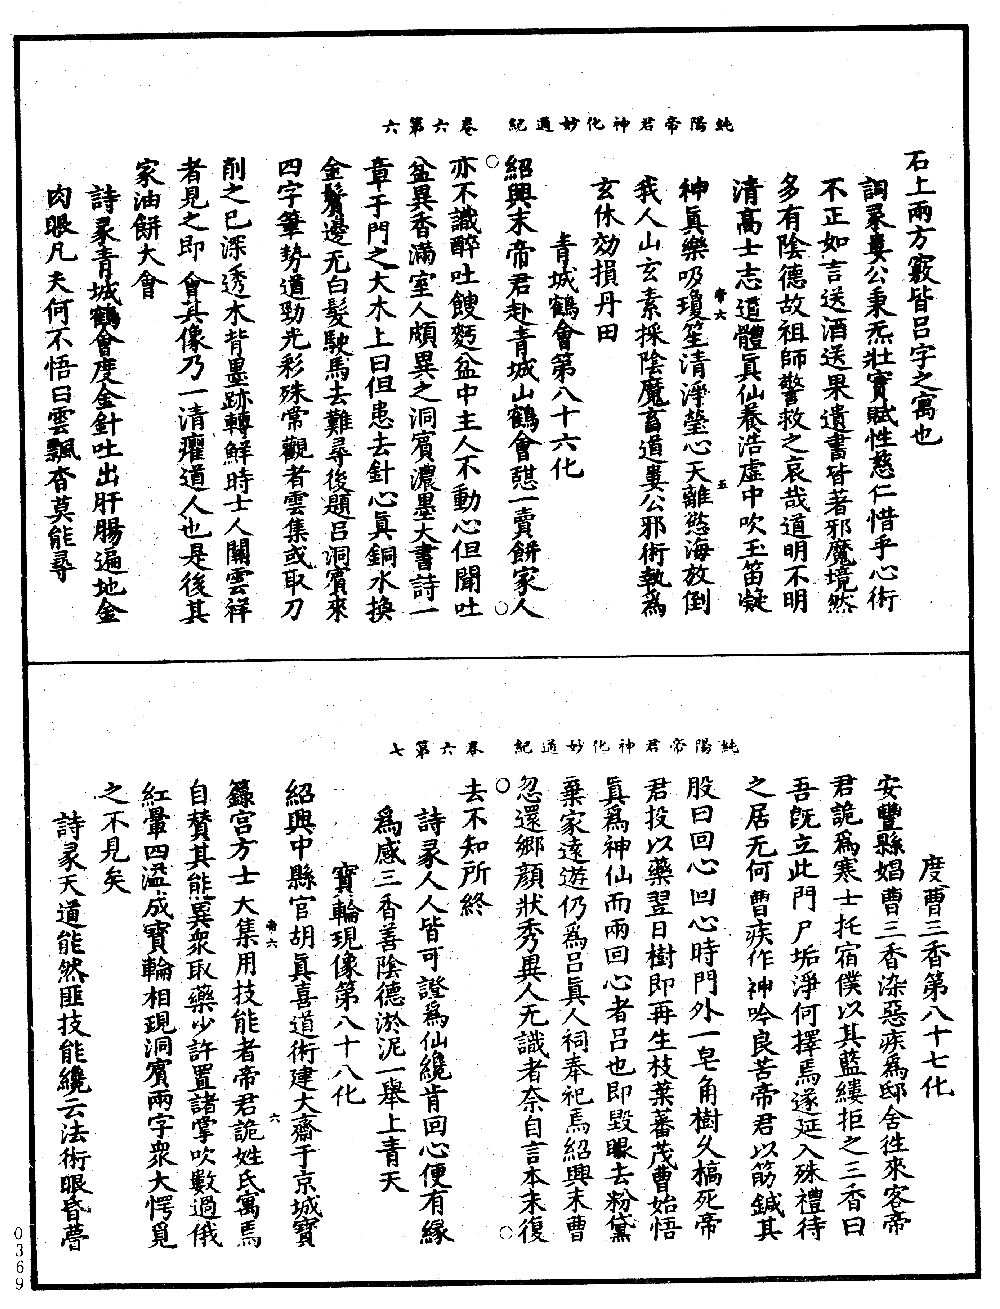 純陽帝君神化妙通紀　卷六第六
石上兩方竅皆呂字之寓也
詞彔婁公秉炁壯實賦性慈仁惜乎心術
不正如言送酒送果遺書皆著邪魔境然
多有陰德故祖師警救之哀哉道明不明
清高士志逭體真仙養浩虛中吹玉笛凝
神真樂吸瓊笙清淨瑩心天離慾海放倒
我人山玄素採陰魔畜道婁公邪術執為
玄休効損丹田
帝六
五
青城鶴會第八十六化
紹興末帝君赴青城山鶴會憇一賣餅家人
亦不識醉吐餿麪盆中主人不動心但聞吐
盆異香滿室人頗異之洞賓濃墨大書詩一
章于門之大木上曰但患去針心真銅水換
金鬢邊无白髮駛馬去難尋後題呂洞賓來
四字筆勢遒勁光彩殊常觀者雲集或取刀
削之已深透木背墨跡轉鮮時士人關雲祥
者見之即會其像乃一清癯道人也是後其
家油餅大會
詩彔青城鶴會度金針吐出肝腸遍地金
肉眼凡夫何不悟白雲飄杳莫能尋
純陽帝君神化妙通紀　卷六第七
度曹三香第八十七化
安豐縣娼曹三香染惡疾為邸舍徃來客帝
君詭為寒士托宿僕以其藍縷拒之三香曰
吾旣立此門尸垢淨何擇焉遂延入殊禮待
之居无何曹疾作神吟良苦帝君以筋鍼其
股曰回心回心時門外一皂角樹久槁死帝
君投以藥翌日樹即再生枝葉蕃茂曹始悟
真為神仙而兩回心者呂也即毀眼去粉黛
棄家遠遊仍為呂真人祠奉祀焉紹興末曹
忽還鄉顏狀秀異人无識者奈自言本末復
去不知所終
詩彔人人皆可證為仙纔肯回心便有緣
為感三香善陰德淤泥一舉上青天
寶輪現像第八十八化
紹興中縣官胡真喜道術建大齋于京城寶
籙宫方士大集用技能者帝君詭姓氏寓焉
自賛其能異衆取藥少許置諸掌吹數過俄
紅暈四溢成寶輪相現洞賓兩字衆大愕覓
之不見矣
帝六
六
詩彔天道能然匪技能纔云法術眼昏瞢
0369